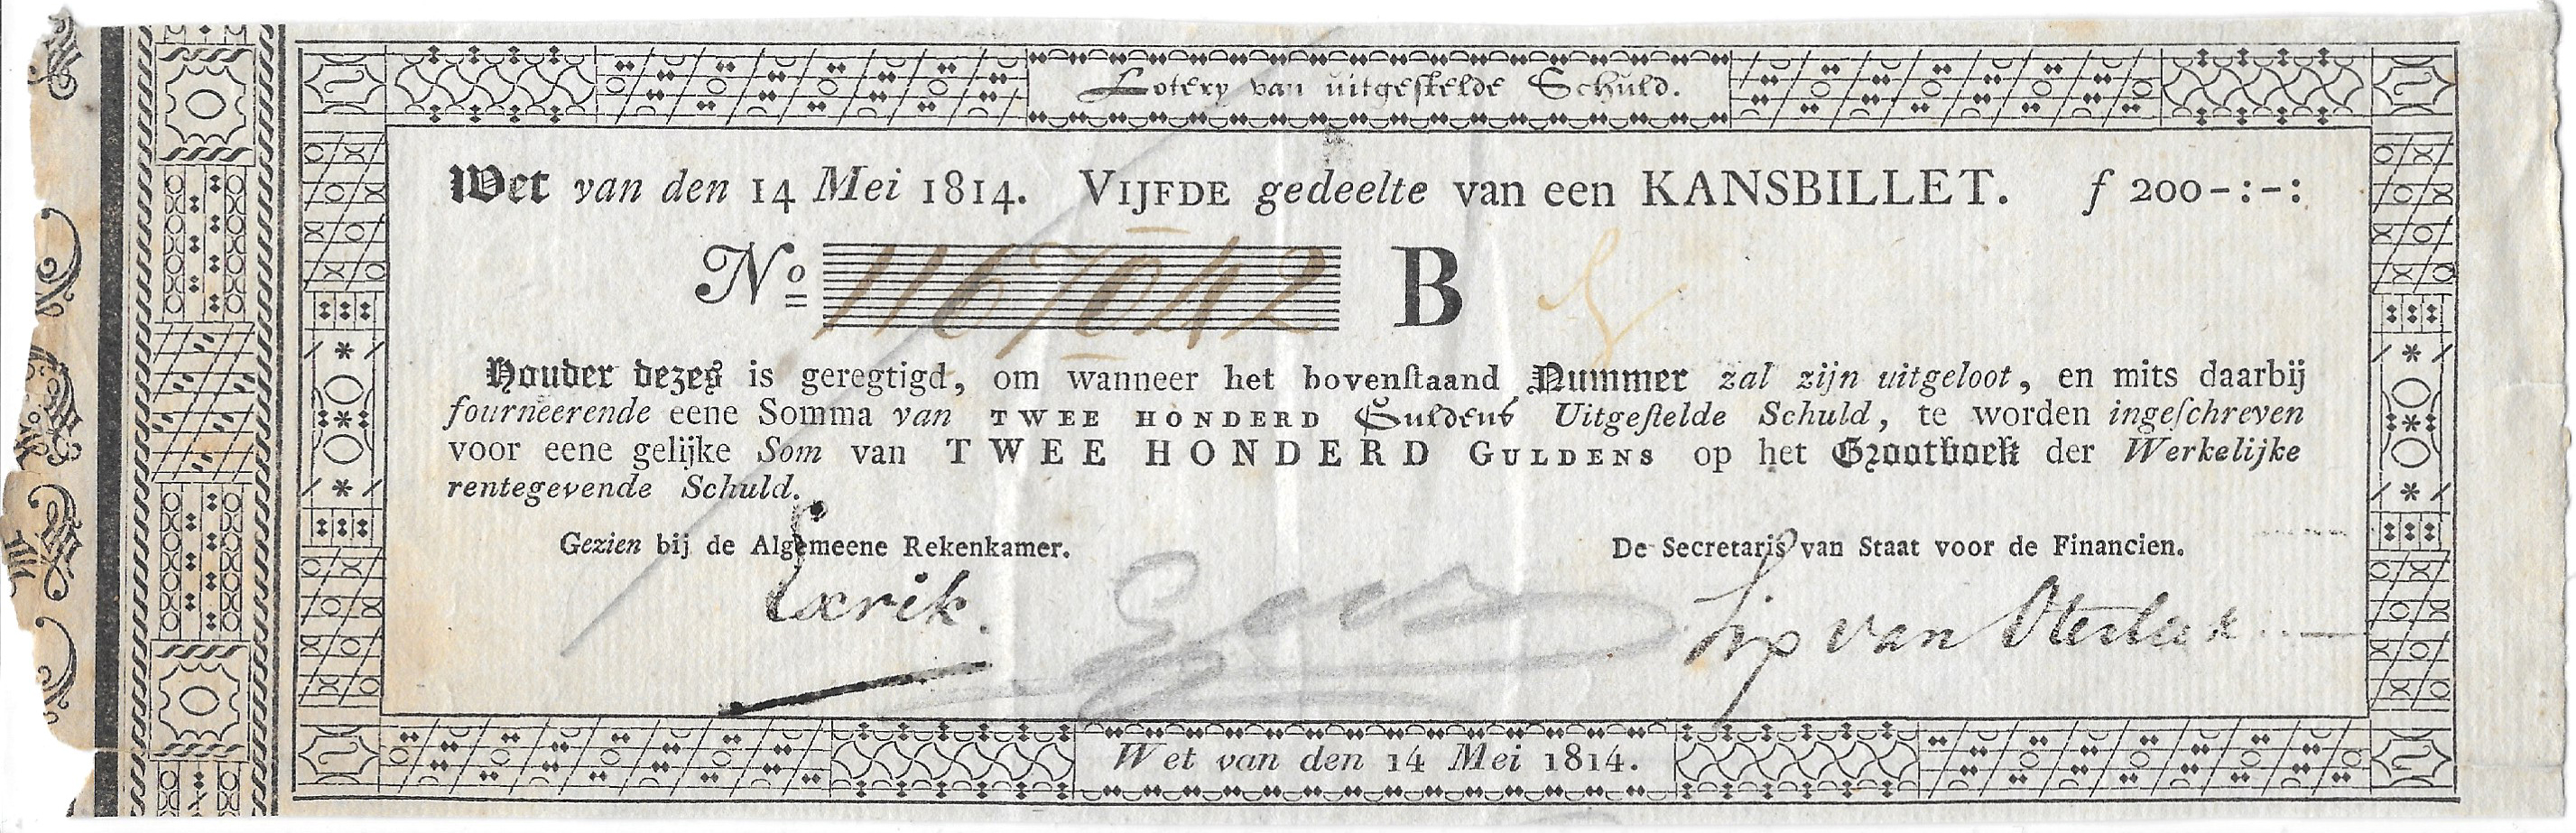 Lotery van uitgestelde Schuld.
Wet van den 14 Mei 1814. VIJFDE gedeelte van een KANSBILLET. ƒ 200-:-:
No 1167042 B
Houder dezes is geregtigd, om wanneer het bovenſtaand Nummer zal zijn uitgeloot, en mits daarbij
fourneerende eene Somma van TWEE HONDERD Guldens Uitgeſtelde Schuld, te worden ingeſchreven
voor eene gelijke Som van TWEE HONDERD GULDENS op het Grootboek der Werkelijke
rentegevende Schuld.
Gezien bij de Algemeene Rekenkamer. De Secretaris van Staat voor de Financien.
van
Wet van den 14 Mei 1814.